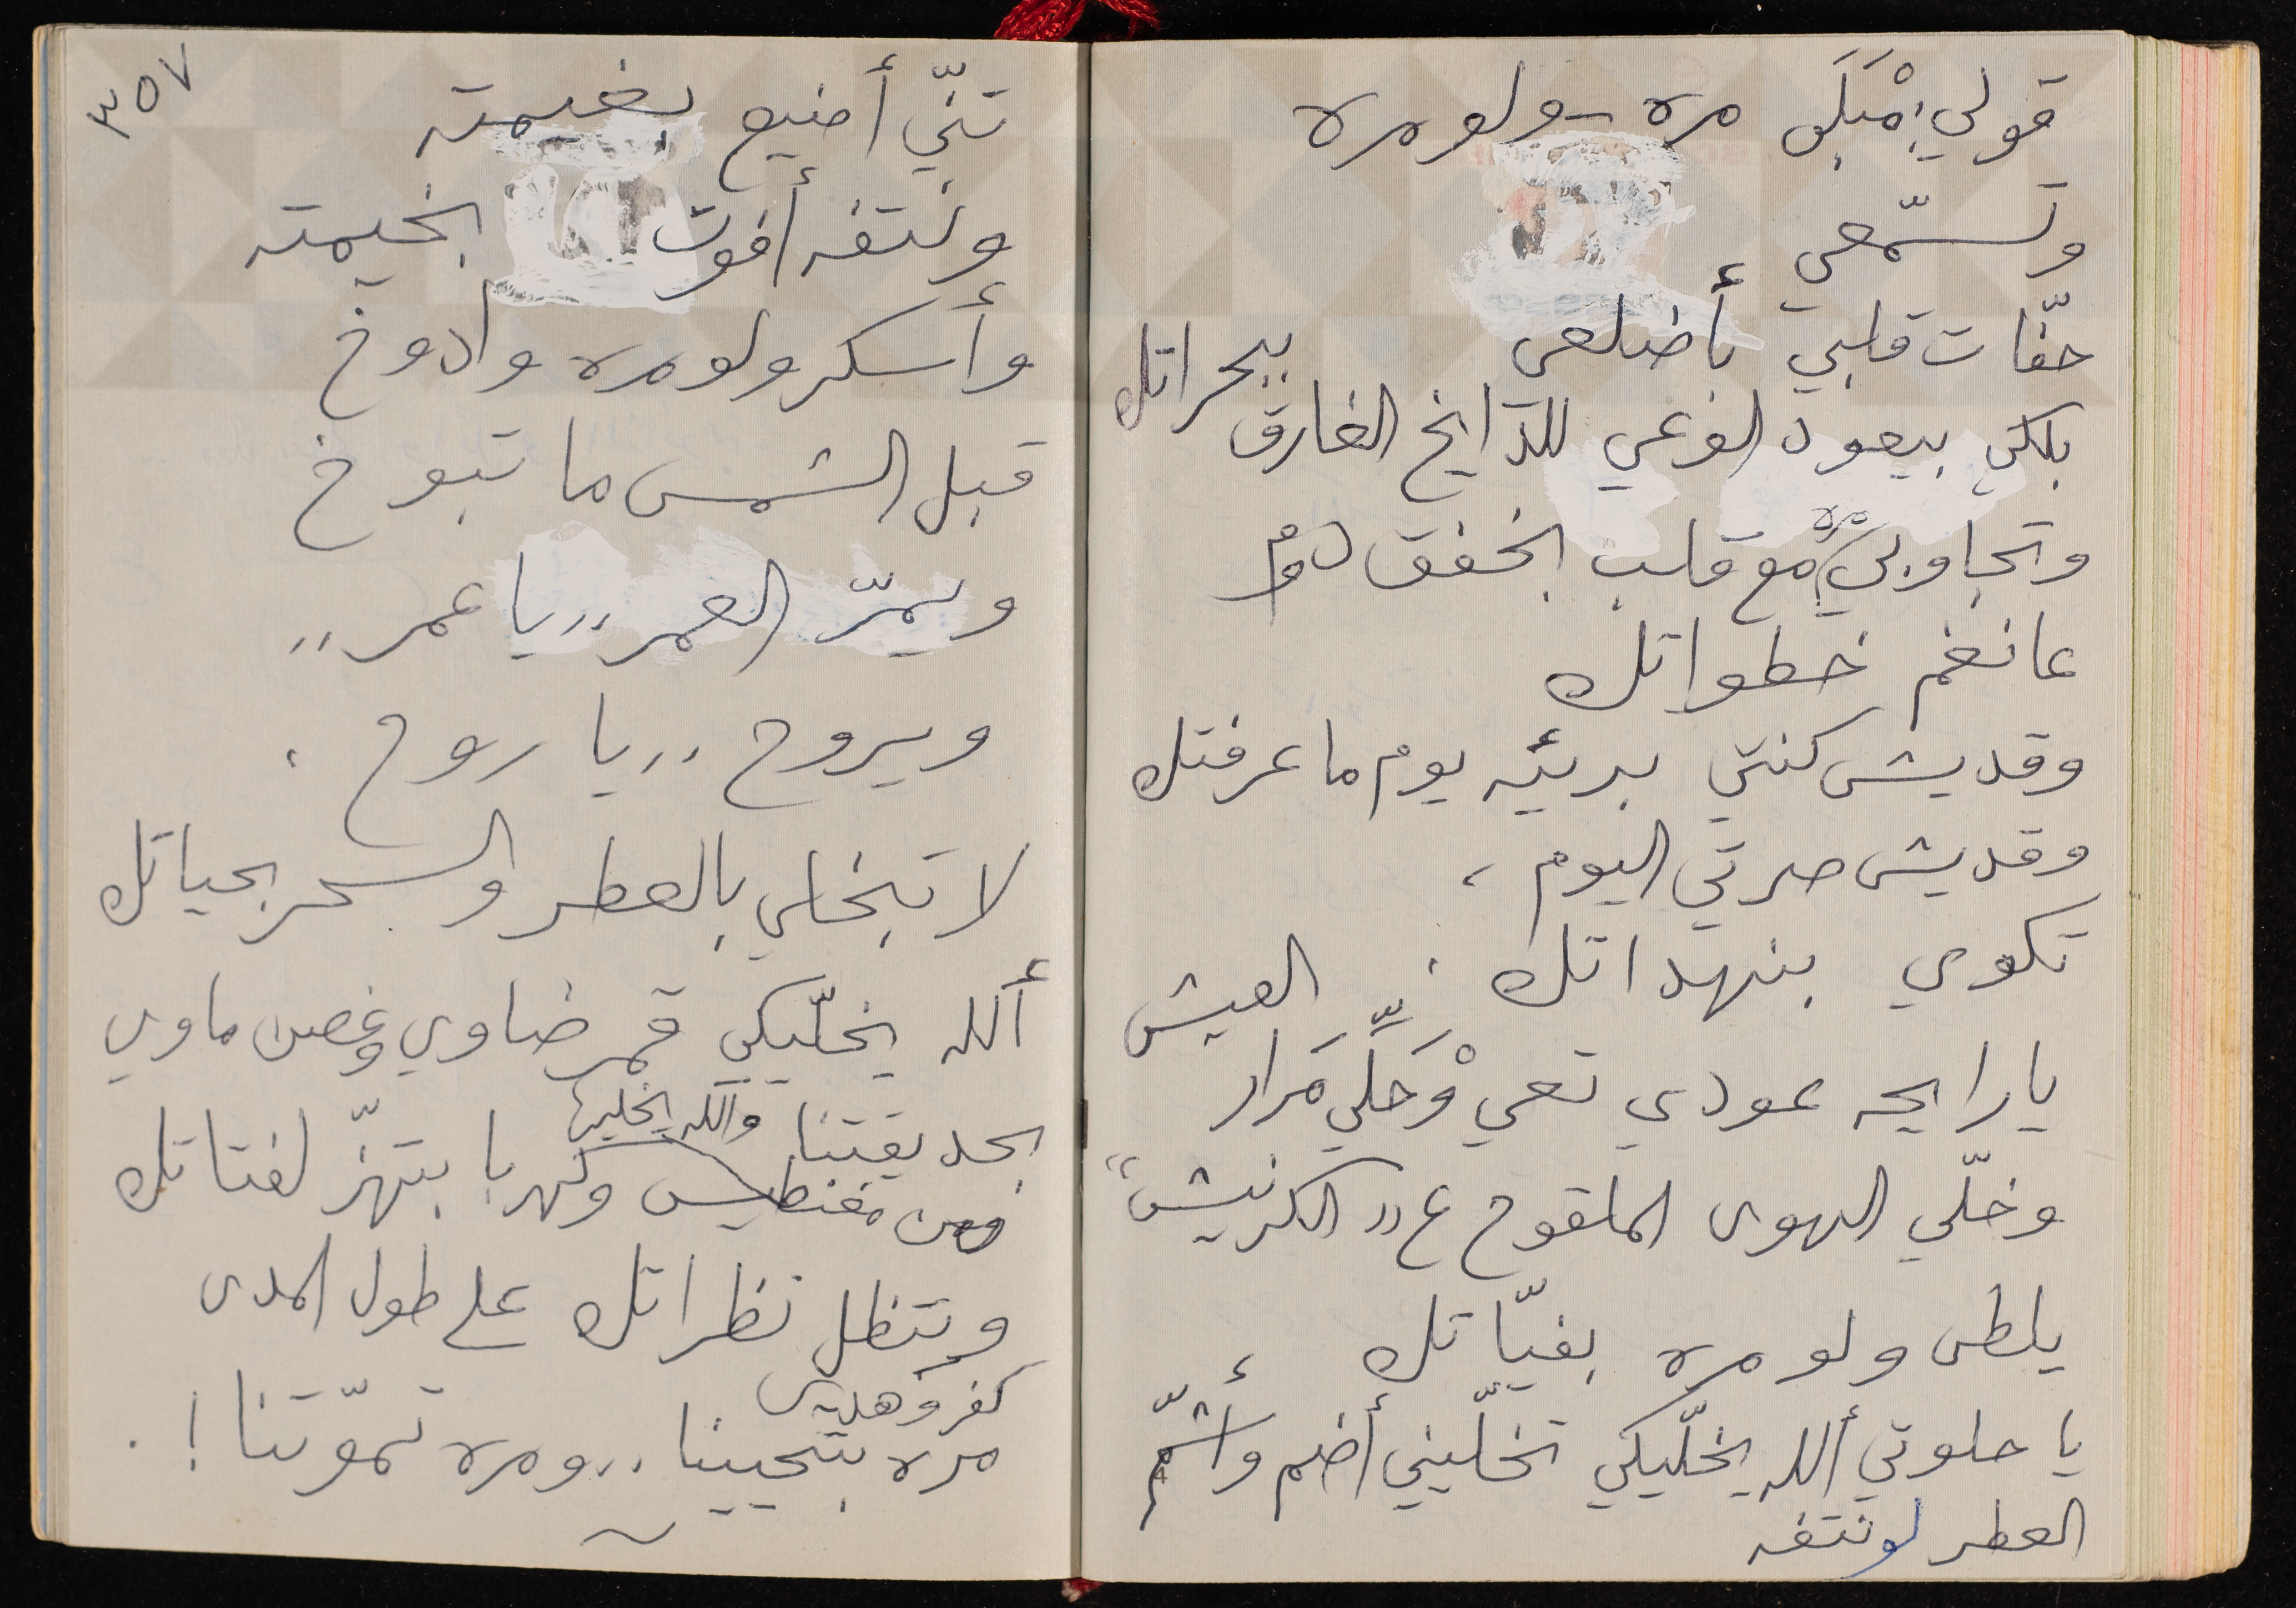 قولي: مْبَلَى مره - ولو مره
وتسمّعي
حفّات قلبي بأضلعي
بلكي بيعود الوعي للدّايخ الغارق ببحراتك
وتجاوبي مره مع قلب الخفق دوم
عا نغم خطواتك
وقديش كنتي بريئه يوم ما عرفتك
وقديش صرتي اليوم ،
تكوي بنهداتك .
يا رايحه عودي تعي وْحَلِّي مَرار العيش
وخلّي الهوى الملقوح ع "الكرنيش"
يلطى ولو مره بفيّاتك
يا حلوتي ألله يخلّيكي تخلّيني أضم وأشمّ
العطر لو نتفه
٣٥٧
تنّي أضيع بغيمته
ونتفه أفوت بخيمته
وأسكر ولو مره وادوخ
قبل الشمس ما تبوخ
ويمرّ العمر ,, يا عمر ,,
ويروح ,, يا روح .
لا تبخلي بالعطر والسحر بحياتك
ألله يخلّيكي قمر ضاوي وغصن ماوي
بحديقتنا والله يخليها
من مغنطيس وكهربا بتهزّ لفتاتك
وتظل نظراتك على طول المدى
كفر وهدى
مره بتحيينا ,, ومره تموّتنا ! .